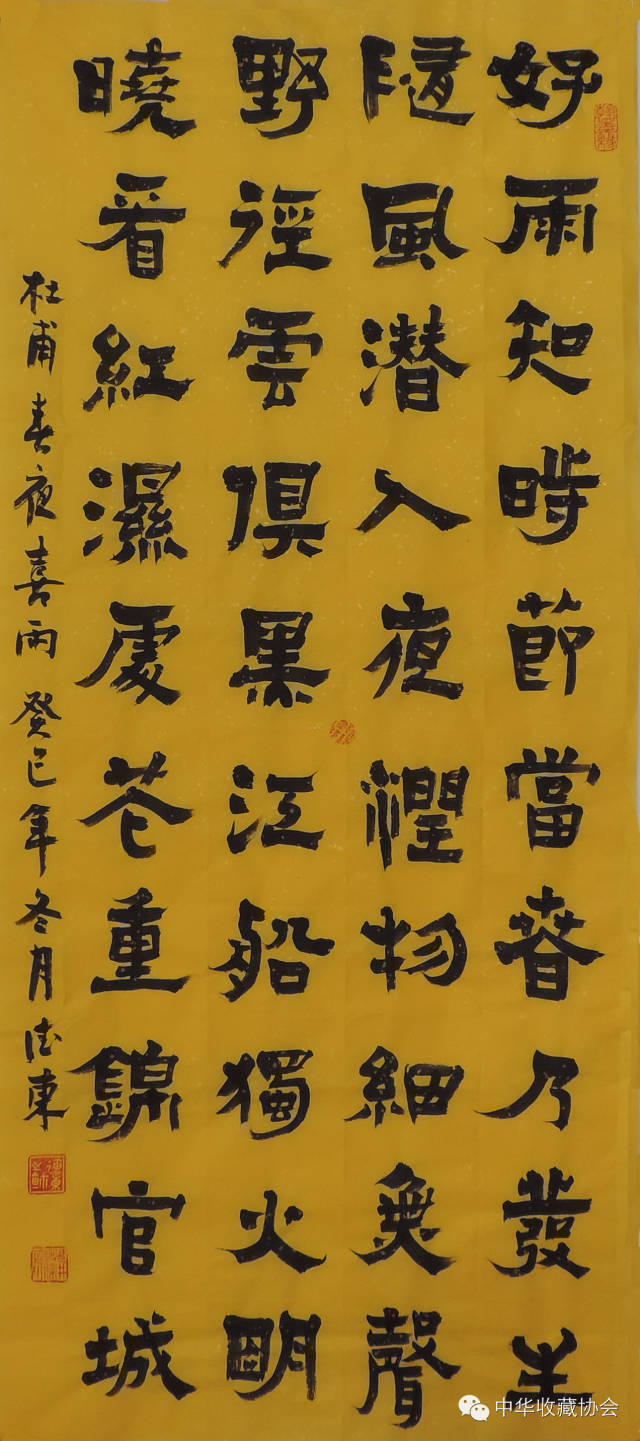 好雨知時節當春乃發生
隨風潛入夜潤物細無聲
野徑雲俱黑江船獨火明
曉看紅濕處花重錦官城
杜甫春夜喜雨癸巳年冬月德東
中华收藏协会